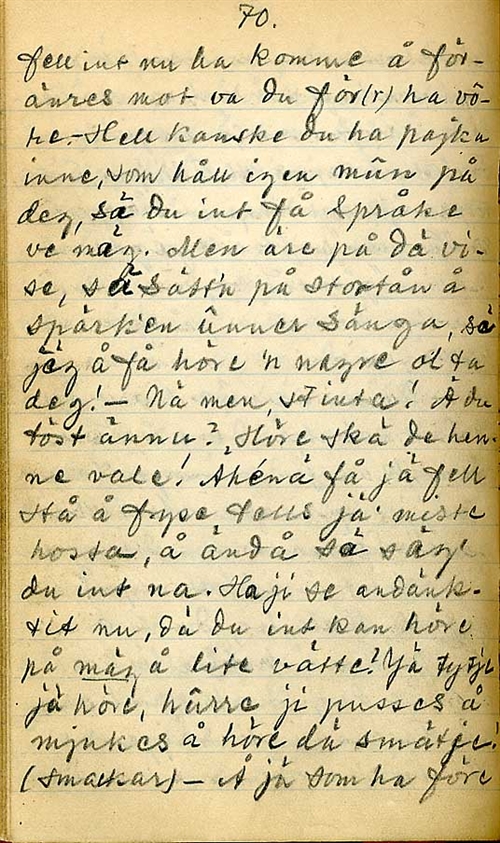 70.
fell int nu ha komme å för-
änres mot va du för(r) ha vö-
re.- Hell kanske du ha påjka
inne, som håll igen mûn på
deg, sä du int få språke
ve mäg. Men äre på dä vi-
se, sä sätt'n på stortån å
spärk'en ûnner sänga, sä
jêg å få höre 'n nagre ol ta
deg! - Nä men, st inta! Ä du
töst ännu? Höre skä de hen-
ne vale! Ahénä få jä fell
stå å frype tells jä miste
hosta, å ändå sä säg'
du int na. Ha ji se andänk-
tit nu, dä du int kan höre
på mäg å lite vätte? Jä tytji
jä höre, hûrre ji pusses å
mjukes å höre dä smätje!
(smackar) - Å jä som ha före